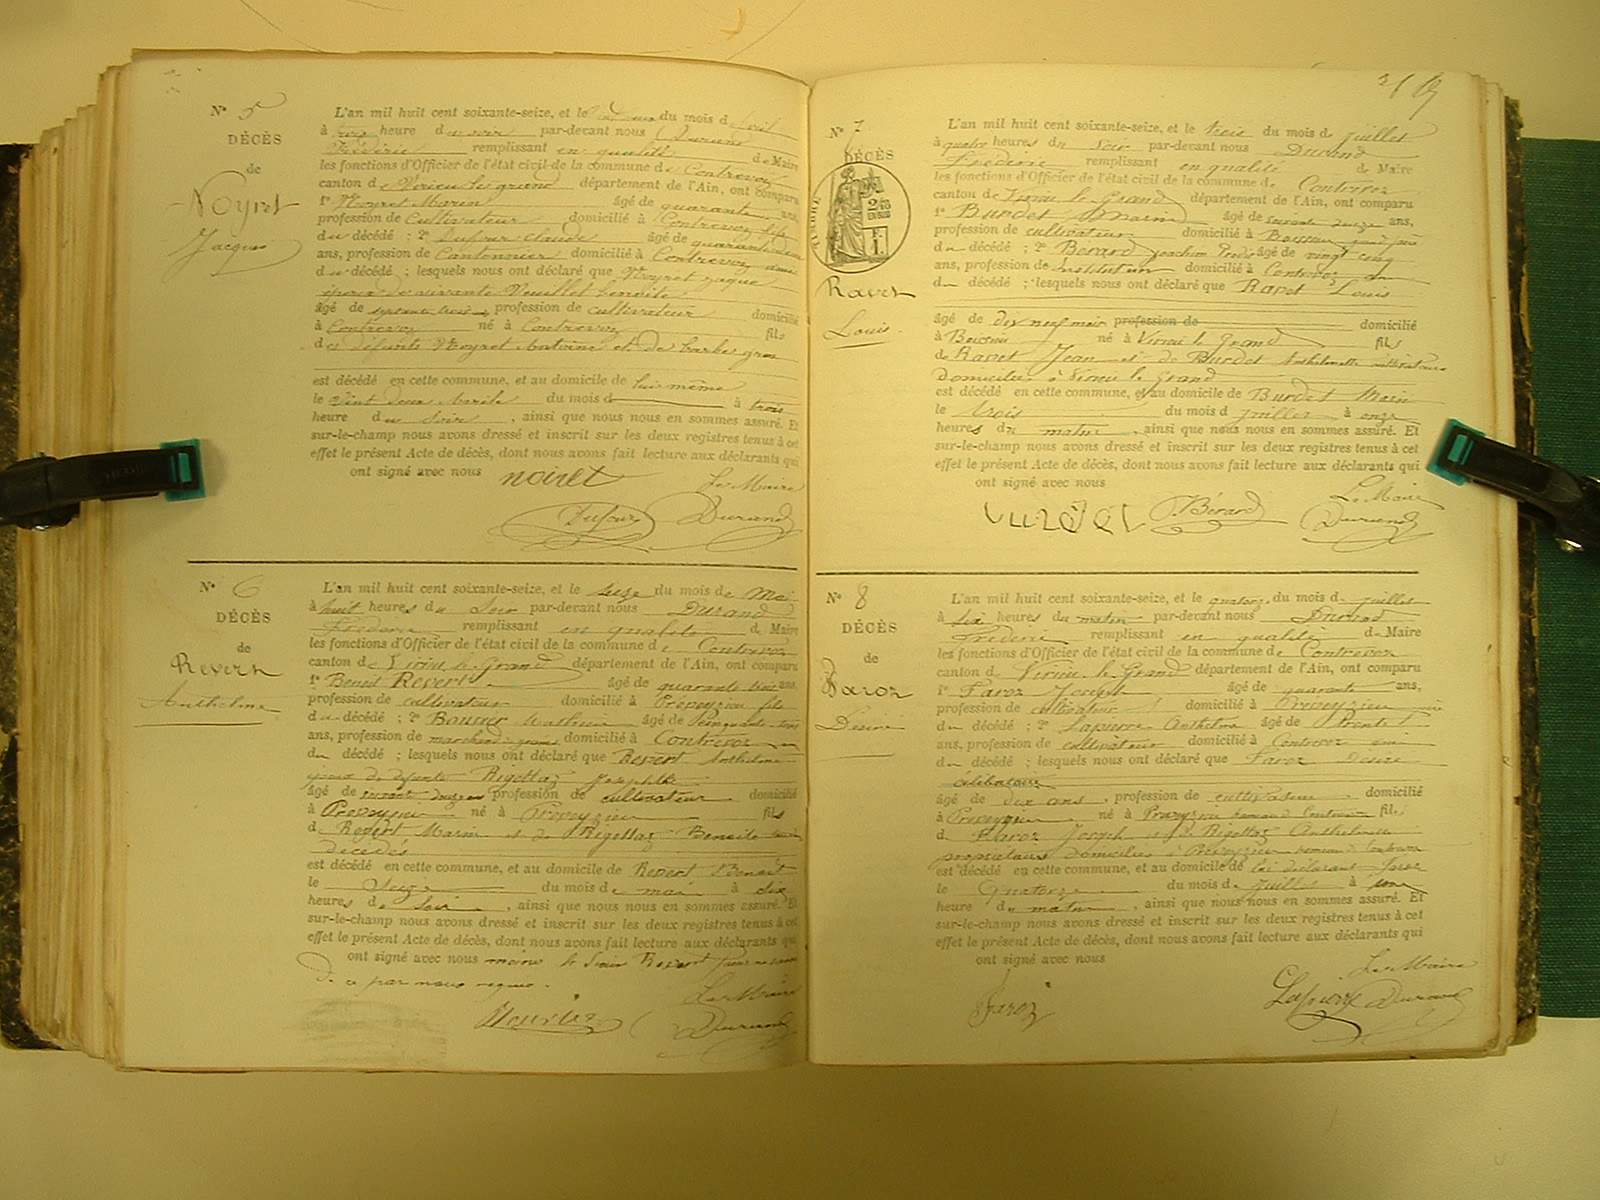 N° 5
DÉCÈS
de
Noyret
Jacques
L'an mil huit cent soixante-seize, et le du mois d
à trois heure du soir par-devant nous Durand
Frédéric remplissant en qualité de Maire
les fonctions d'Officier de l'état civil de la commune de Contrevoz
canton de Virieu le grand département de l'Ain, ont comparu
1° Noyret Marin âgé de quarante ans,
profession de Cultivateur domicilié à Contrevoz fils
du décédé ; 2° Dufour claude âgé de quarante deux
ans, profession de Cantonnier domicilié à Contrevoz ami
du décédé ; lesquels nous ont déclaré que Noyret Jaque
époux de vivante Benoite
âgé de septante trois profession de cultivateur domicilié
à Contrevoz né à Contrevoz fils
des défunts Noyret Antoine et de Barbe gros
est décédé en cette commune, et au domicile de lui même
le vint deux Avrile du mois d à trois
heure du Soire, ainsi que nous nous en sommes assuré. Et
sur-le-champ nous avons dressé et inscrit sur les deux registres tenus à cet
effet le présent Acte de décès, dont nous avons fait lecture aux déclarants qui
ont signé avec nous noiret Le Maire
Dufour Durand
N° 6
DÉCÈS
de
Revert
Anthelme
L'an mil huit cent soixante-seize, et le seize du mois de Mai
à huit heures du Soir par-devant nous Durand
Frédéric remplissant en qualité de Maire
les fonctions d'Officier de l'état civil de la commune de Contrevoz
canton de Virieu le Grand département de l'Ain, ont comparu
1° Benoit Revert âgé de quarante trois ans,
profession de cultivateur domicilié à Prépeyzieu fils
du décédé ; 2° Mathieu âgé de cinquante
ans, profession de marchand domicilié à Contrevoz
du décédé ; lesquels nous ont déclaré que Revert Anthelme
époux de défunte Rigollaz Josephte
âgé de profession de cultivateur domicilié
à Prépeyzieu né à Prépeyzieu fils
d Revert Marin et de Rigollaz Benoite
décédés
est décédé en cette commune, et au domicile de Revert Benoit
le Seize du mois de mai à six
heures du Soir, ainsi que nous nous en sommes assuré. Et
sur-le-champ nous avons dressé et inscrit sur les deux registres tenus à cet
effet le présent Acte de décès, dont nous avons fait lecture aux déclarants qui
ont signé avec nous moins le Sieur Revert
de ce par nous requis.
Le Maire
Durand
N° 7
DÉCÈS
TIMBRE
2/10
EN SUS
1 F.
Ravet
Louis
L'an mil huit cent soixante-seize, et le trois du mois de juillet
à quatre heures du Soir par-devant nous Durand
Frédéric remplissant en qualité de Maire
les fonctions d'Officier de l'état civil de la commune de Contrevoz
canton de Virieu le Grand département de l'Ain, ont comparu
1° Burdet Marin âgé de soixante ans,
profession de cultivateur domicilié à Boissieu grand père
du décédé ; 2° Berard Joachim âgé de vingt cinq
ans, profession de instituteur domicilié à Contrevoz
du décédé ; lesquels nous ont déclaré que Ravet Louis
âgé de dix neuf mois profession de domicilié
à Boissieu né à Virieu le Grand fils
de Ravet Jean et de Burdet Anthelmette cultivateurs
domiciliés à Virieu le Grand
est décédé en cette commune, et au domicile de Burdet Marin
le trois du mois de juillet à onze
heures du matin, ainsi que nous nous en sommes assuré. Et
sur-le-champ nous avons dressé et inscrit sur les deux registres tenus à cet
effet le présent Acte de décès, dont nous avons fait lecture aux déclarants qui
ont signé avec nous
Le Maire
Bérard Durand
N° 8
DÉCÈS
de
Faroz
Désiré
L'an mil huit cent soixante-seize, et le quatorze du mois de juillet
à six heures du matin par-devant nous Durand
Frédéric remplissant en qualité de Maire
les fonctions d'Officier de l'état civil de la commune de Contrevoz
canton de Virieu le Grand département de l'Ain, ont comparu
1° Faroz Joseph âgé de quarante ans,
profession de cultivateur domicilié à Prépeyzieu
du décédé ; 2° Lapierre Anthelme âgé de Trente
ans, profession de cultivateur domicilié à Contrevoz ami
du décédé ; lesquels nous ont déclaré que Faroz Désiré
célibataire
âgé de dix ans, profession de cultivateur domicilié
à Prépeyzieu né à Prépeyzieu hameau de Contrevoz fils
d Faroz Joseph et de Rigollaz Anthelmette
propriétaires domiciliés à Prépeyzieu hameau de Contrevoz
est décédé en cette commune, et au domicile de lui déclarant Faroz
le Quatorze du mois de juillet à une
heure du matin, ainsi que nous nous en sommes assuré. Et
sur-le-champ nous avons dressé et inscrit sur les deux registres tenus à cet
effet le présent Acte de décès, dont nous avons fait lecture aux déclarants qui
ont signé avec nous
Le Maire
Faroz Lapierre Durand